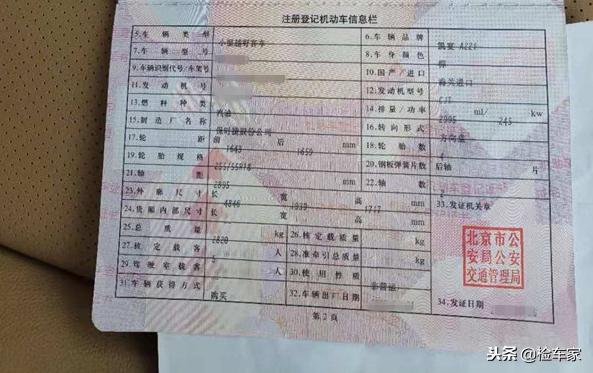 注册登记机动车信息栏
5.车辆类型 小型越野客车 6.车辆品牌
7.车辆型号 8.车身颜色
9.车辆识别代号/车架号 10.国产/进口 海关进口
11.发动机号 12.发动机型号 CJT
13.燃料种类 汽油 14.排量/功率 2995 ml/ 245 kw
15.制造厂名称 保时捷股份公司 16.转向形式 方向盘
17.轮距 前 1643 后 1659 mm 18.轮胎数
19.轮胎规格 20.钢板弹簧片数 后轴 片
21.轴距 2895 mm 22.轴数
23.外廓尺寸 长 4846 宽 1939 高 1717 mm 33.发证机关章
24.货厢内部尺寸 长 宽 高 mm
25.总质量 2820 kg 26.核定载质量 kg
27.核定载客 5 人 28.准牵引总质量 kg
29.驾驶室载客 人 30.使用性质 非营运
31.车辆获得方式 购买 32.车辆出厂日期 34.发证日期
北京市公
安局公安
交通管理局
第2页
头条 @检车家